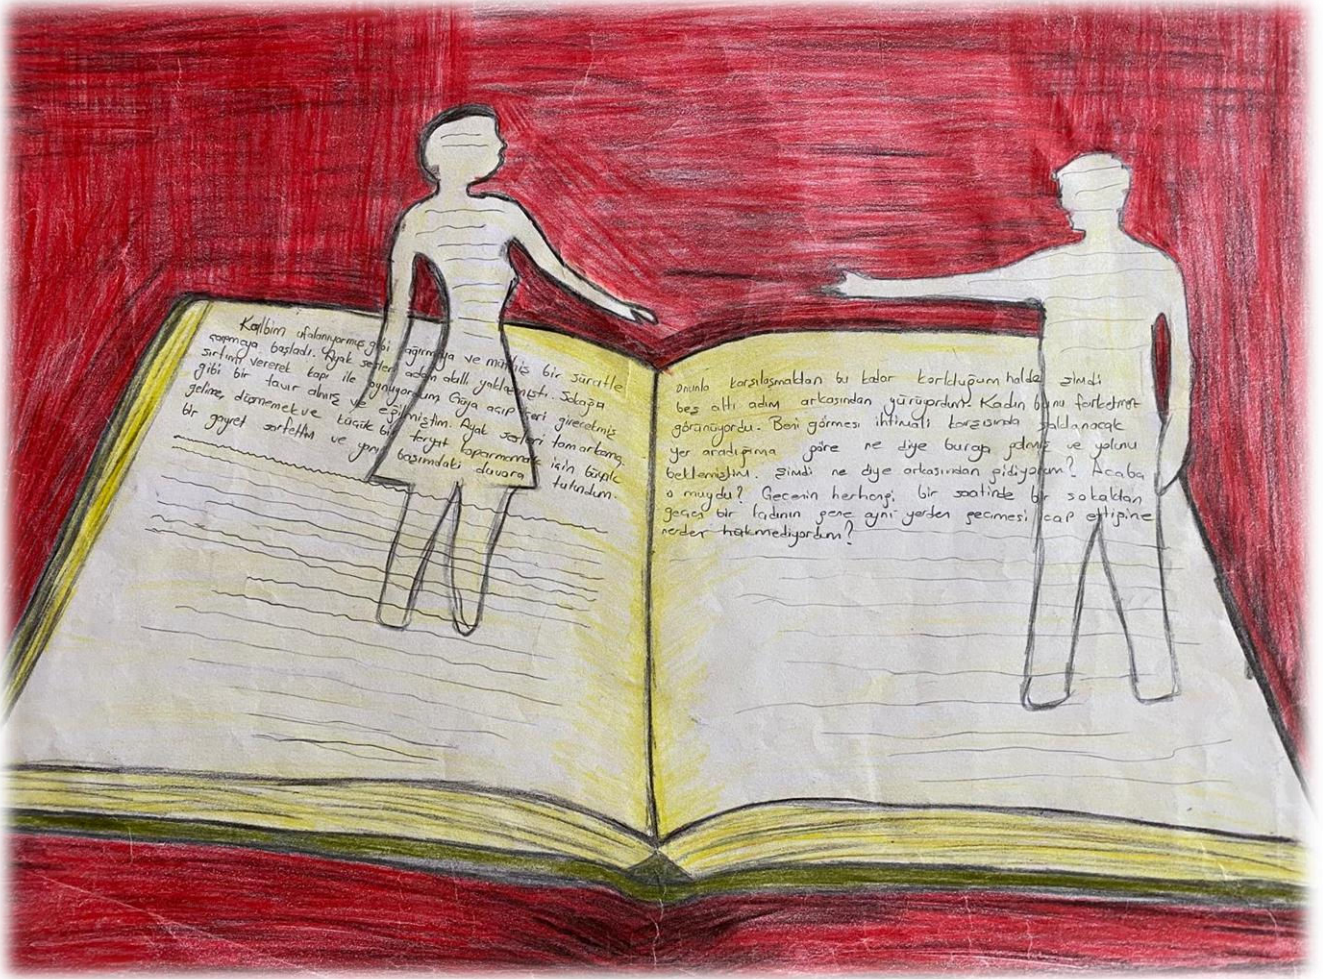 Kalbim ufalanıyormuş gibi ağrımaya ve müthiş bir süratle
çarpmaya başladı. Ayak sesleri adam akıllı yaklaşmıştı. Sokağa
sırtımı vererek kapı ile oynuyordum Güya açıp içeri girecekmiş
gibi bir tavır almış ve eğilmiştim. Ayak sesleri tam arkama
gelince, düşmemek ve küçük bir feryat koparmamak için büyük
bir gayret sarfettim ve yanı başımdaki duvara tutundum.
Onunla karşılaşmaktan bu kadar korktuğum halde şimdi
beş altı adım arkasından yürüyordum. Kadın bunu farketmez
görünüyordu. Beni görmesi ihtimali karşısında saklanacak
yer aradığıma göre ne diye buraya gelmiş ve yolunu
beklemiştim. Şimdi ne diye arkasından gidiyorum? Acaba
o muydu? Gecenin herhangi bir saatinde bir sokaktan
geçen bir kadının gene aynı yerden geçmesi icap ettiğine
nerden hükmediyordum?